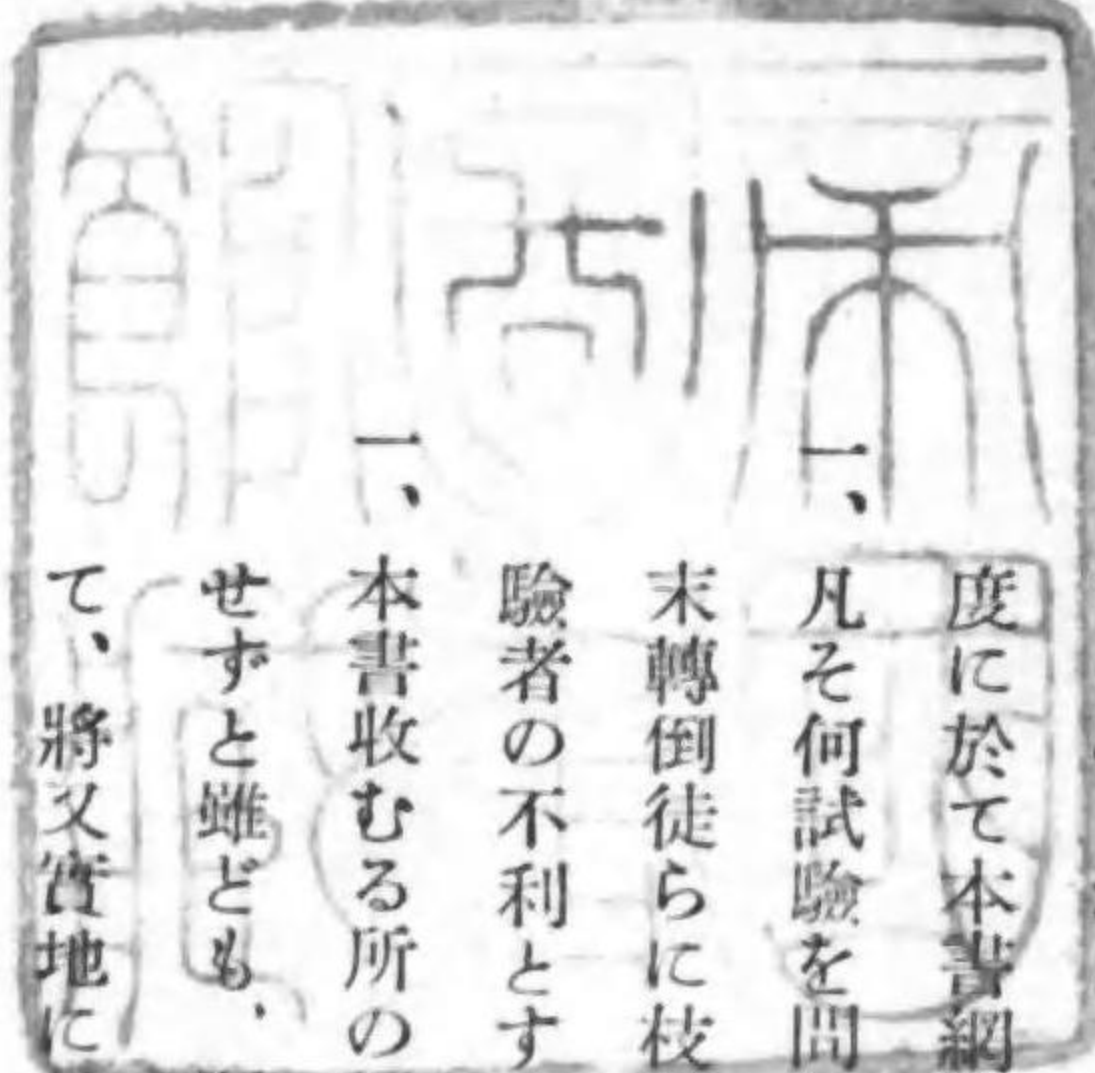 度に於て本書綱
一、凡そ何試驗を問
末轉倒徒らに枝
驗者の不利とす
一、本書收むる所の
せずと雖ども、
て、將又實地に